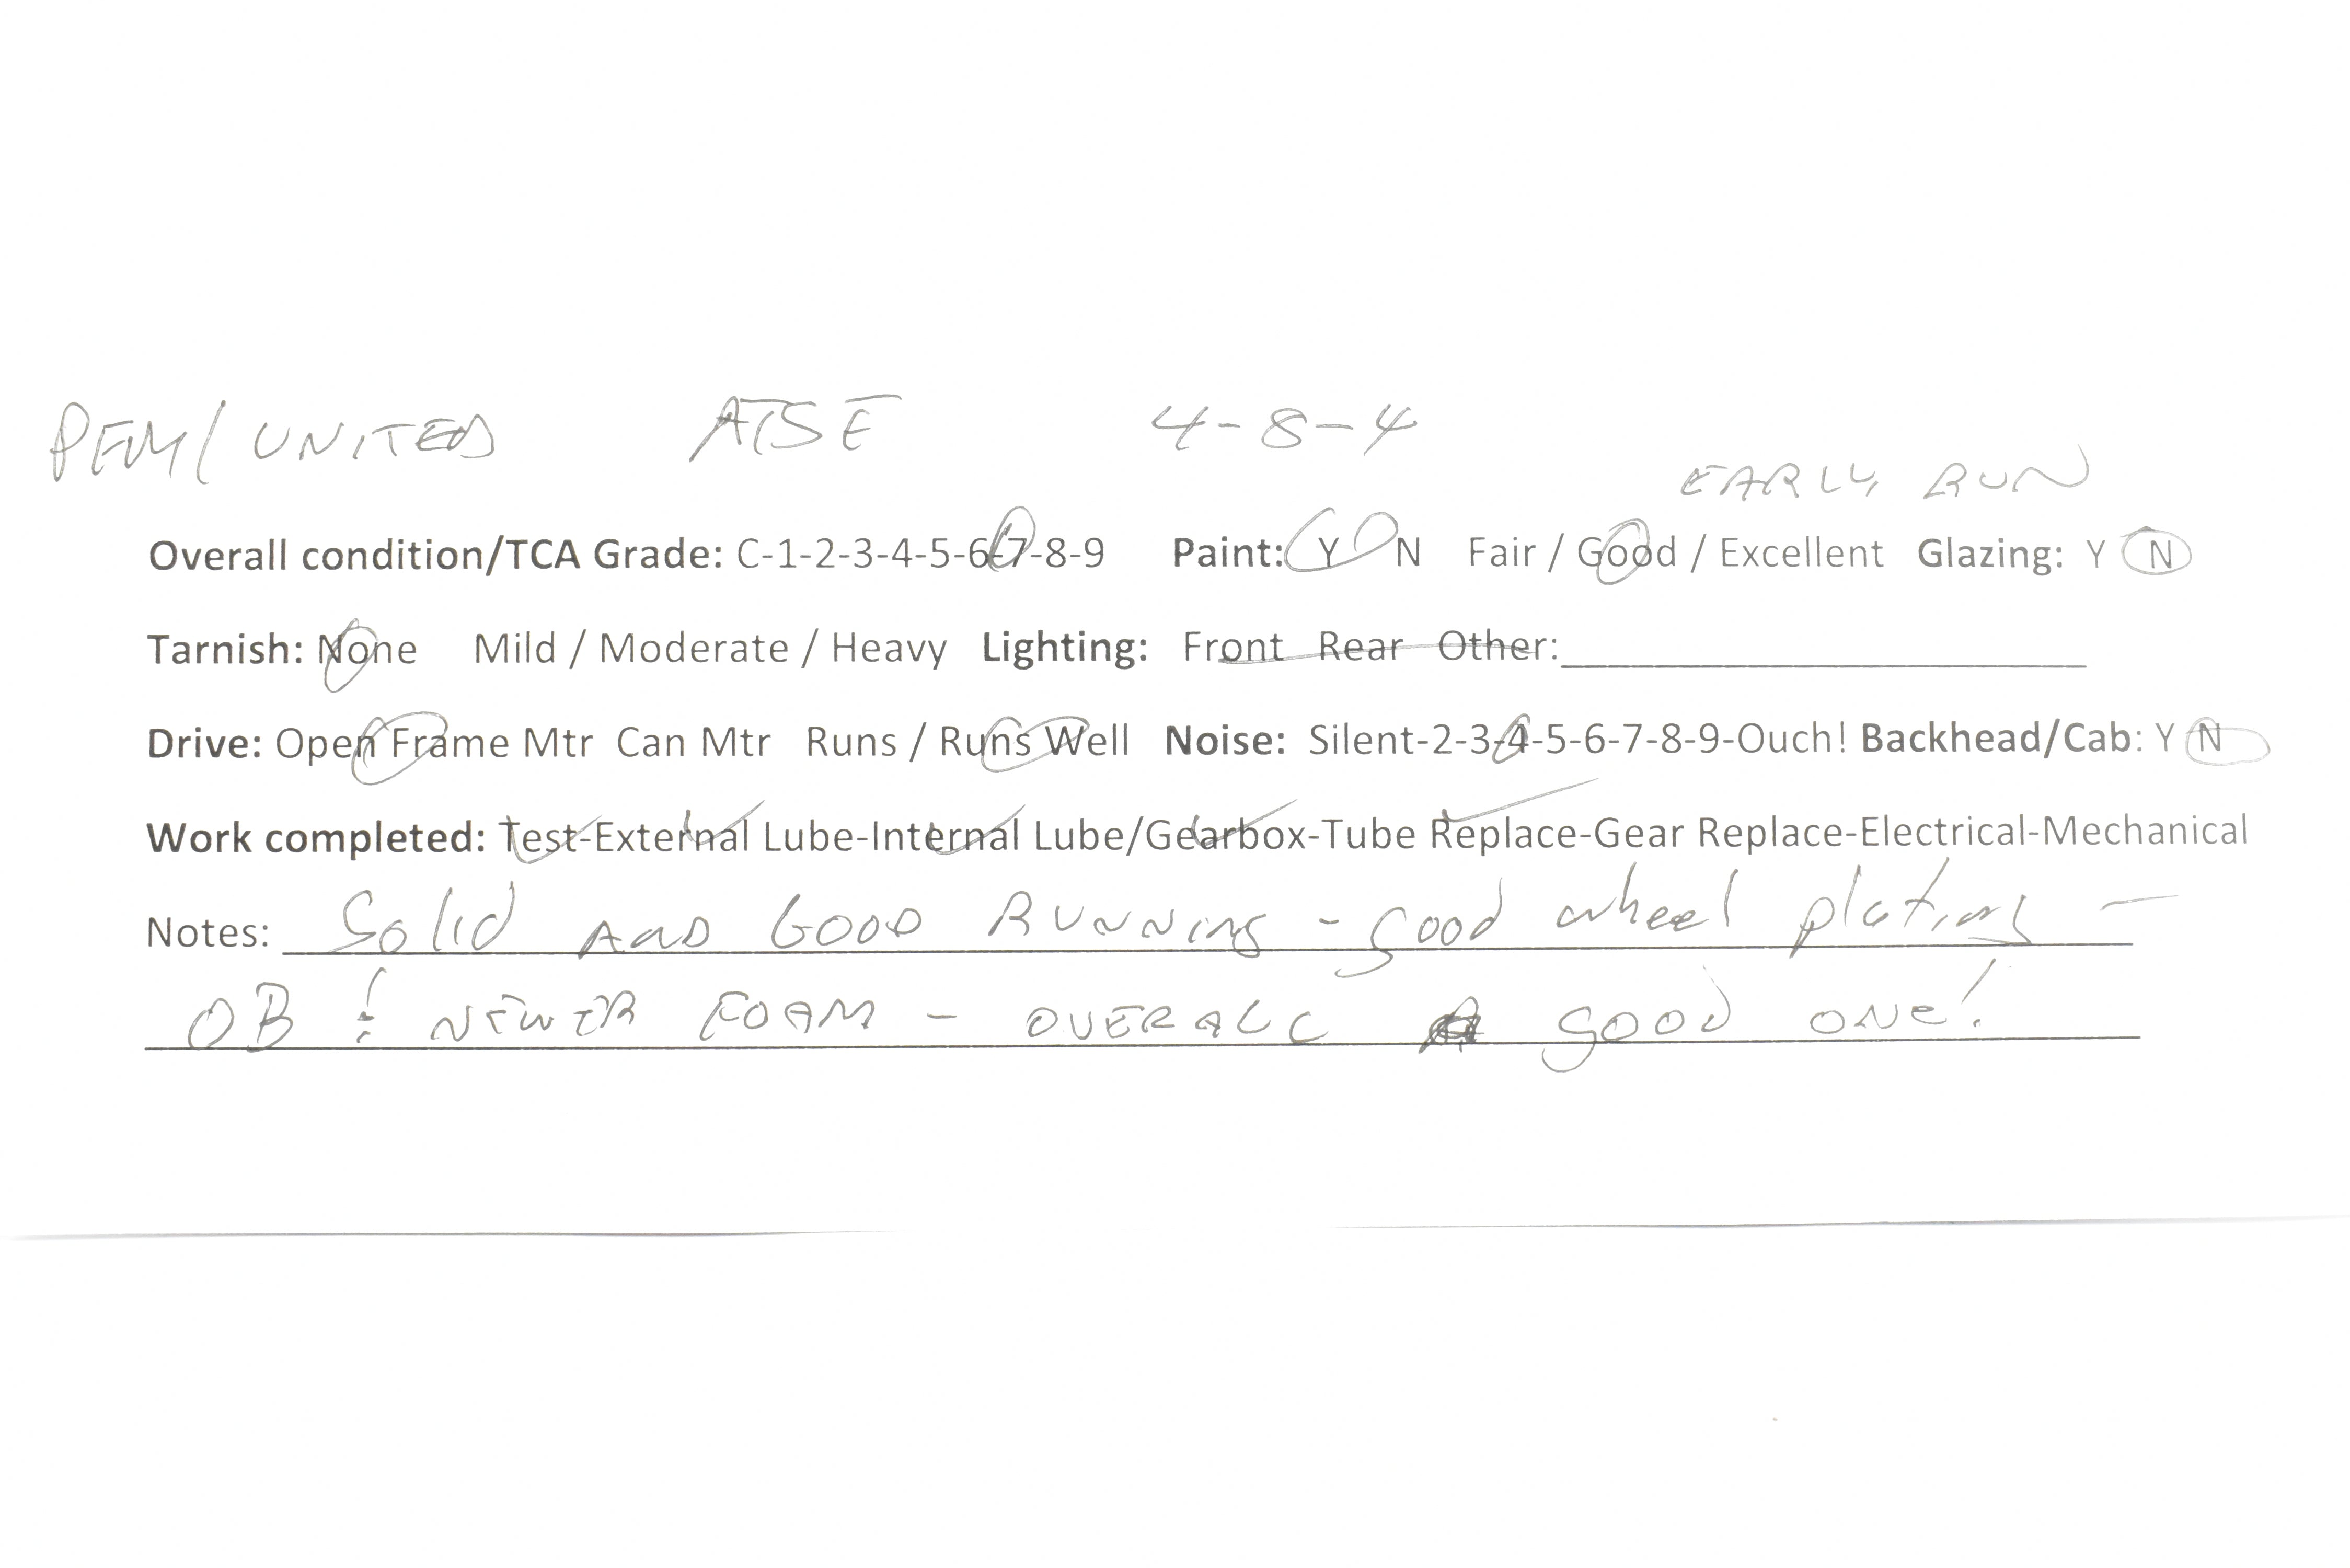 PFM/UNITED ATSF 4-8-4
EARLY RUN
Overall condition/TCA Grade: C-1-2-3-4-5-6-7-8-9 Paint: Y N Fair / Good / Excellent Glazing: Y N
Tarnish: None Mild / Moderate / Heavy Lighting: Front Rear Other:
Drive: Open Frame Mtr Can Mtr Runs / Runs Well Noise: Silent-2-3-4-5-6-7-8-9-Ouch! Backhead/Cab: Y N
Work completed: Test-External Lube-Internal Lube/Gearbox-Tube Replace-Gear Replace-Electrical-Mechanical
Notes: Solid AND GOOD RUNNING - good wheel plating -
OB & NEWER FOAM - OVERALL A GOOD ONE!